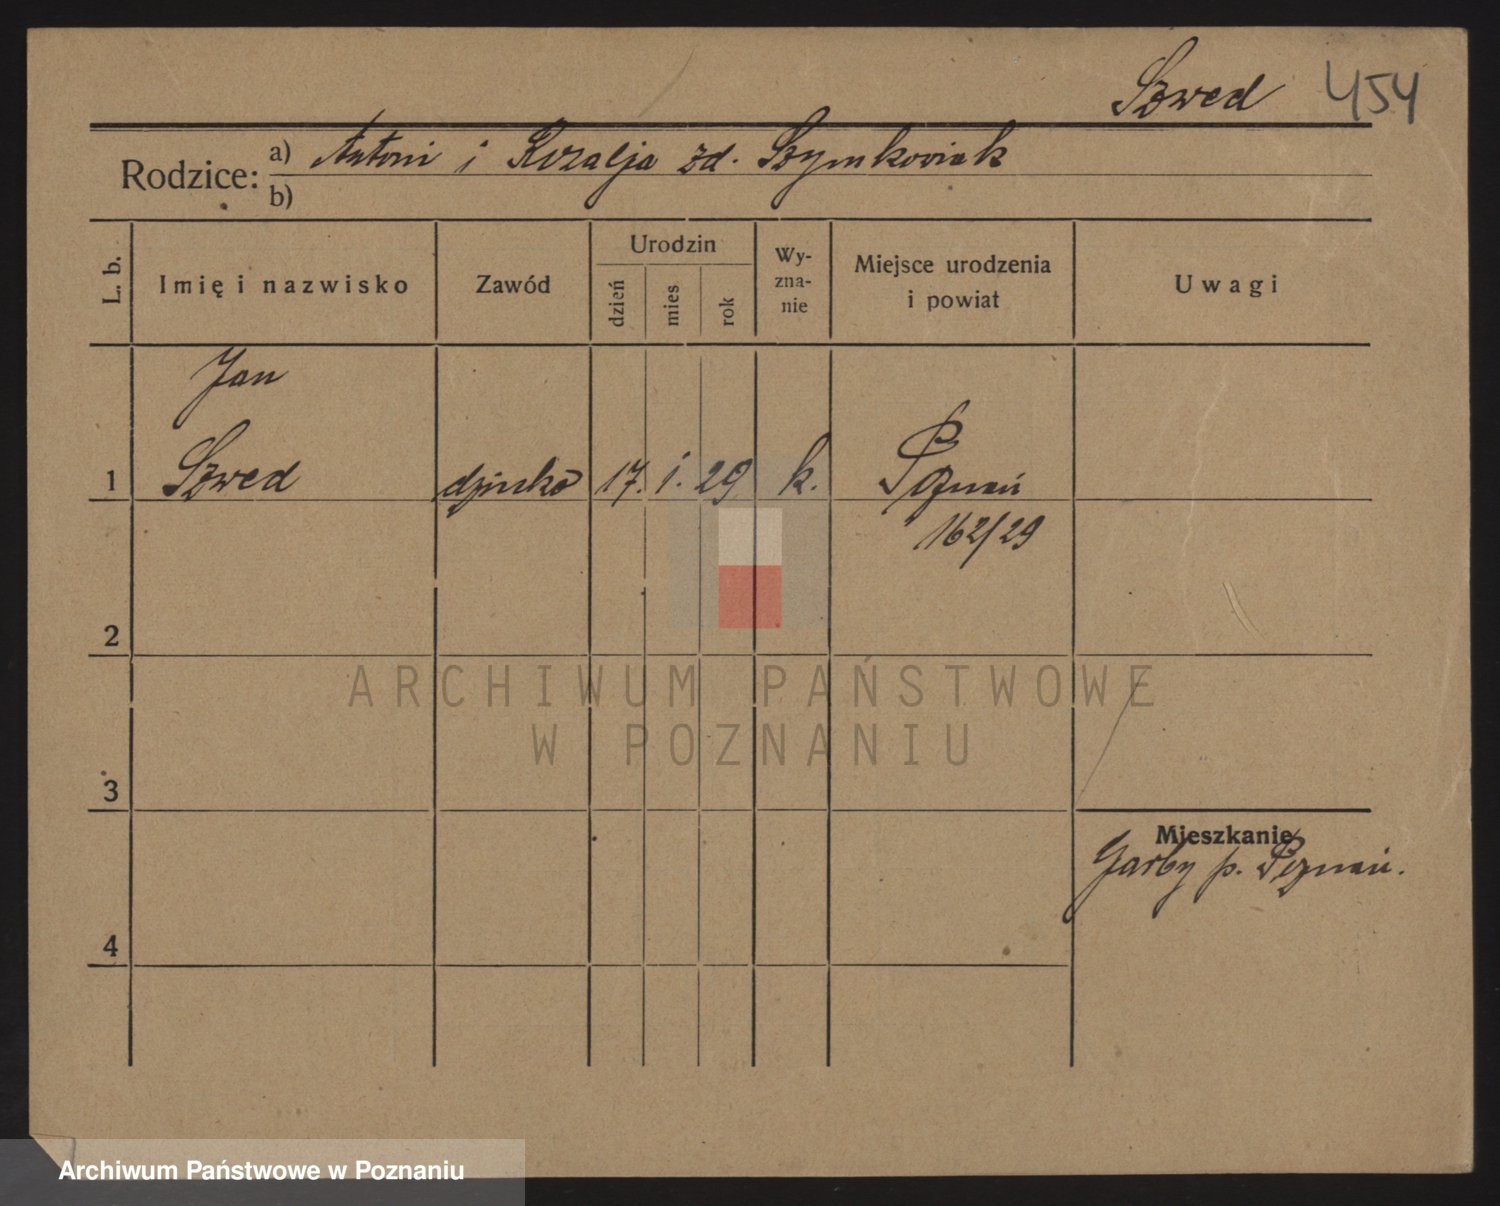 Szwed 454
Rodzice: a) Antoni i Rozalja zd. Szymkowiak
b)
L. b. Imię i nazwisko Zawód Urodzin dzień mies rok Wy-zna-nie Miejsce urodzenia i powiat Uwagi
Jan
1 Szwed dziecko 17. 1. 29 k. Poznań
162/29
2
ARCHIWUM PAŃSTWOWE
W POZNANIU
3
Mieszkanie
Garby p. Poznań.
4
Archiwum Państwowe w Poznaniu